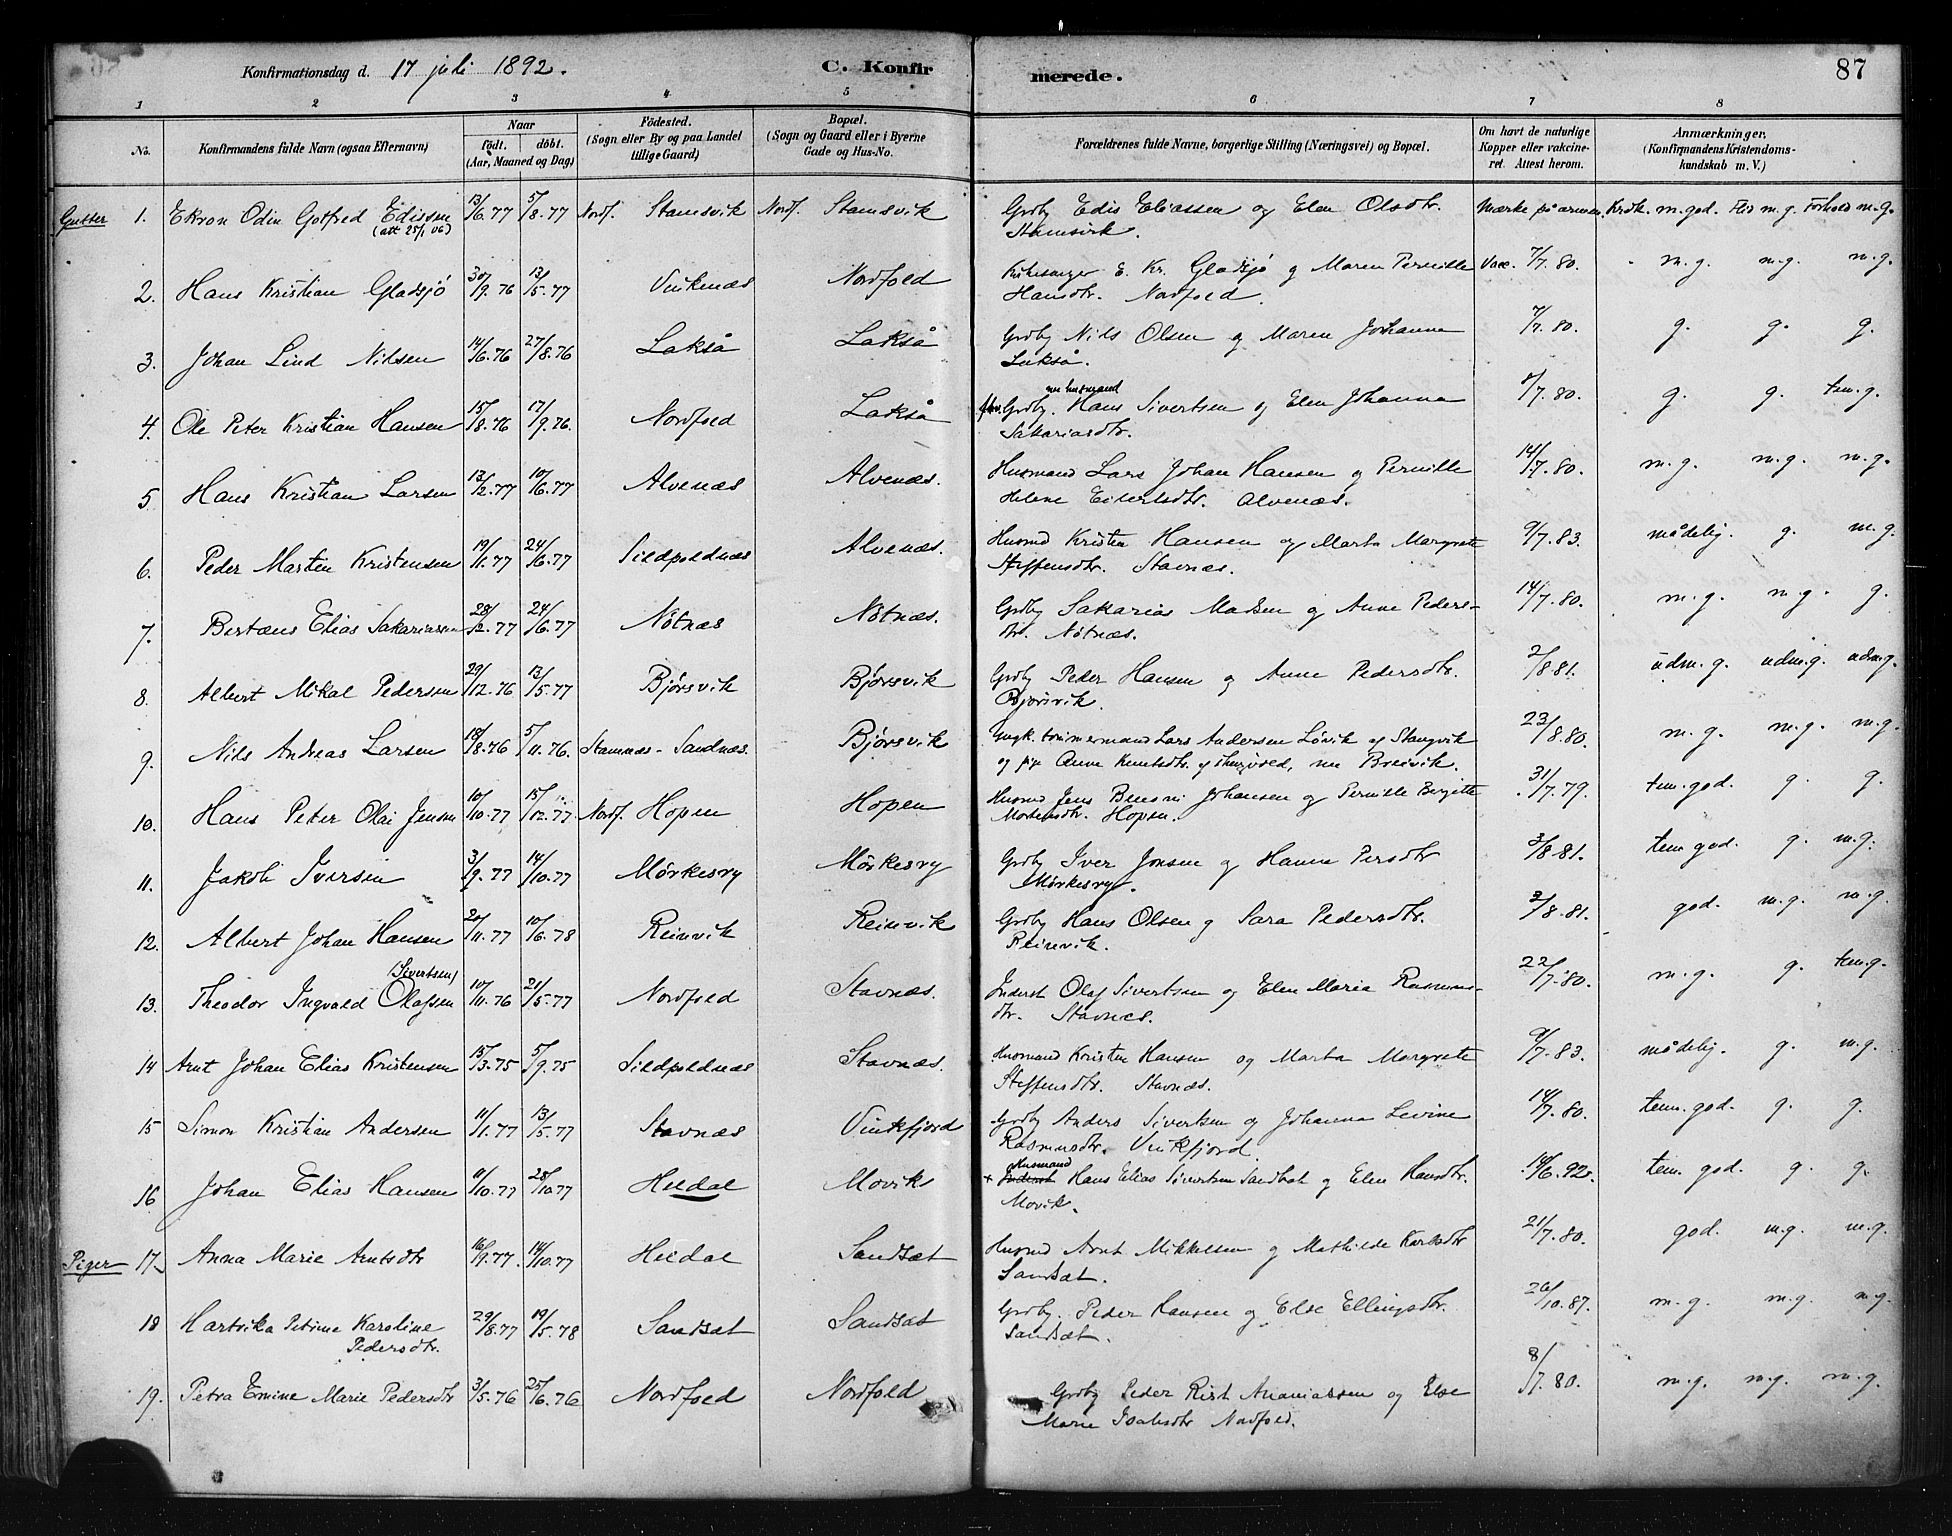 Konfirmationsdag d. 17 juli 1892. C. Konfirmerede. 87
1 2 3 4 5 6 7 8
No. Konfirmandens fulde Navn (ogsaa Efternavn) Naar født. døbt. (Aar, Maaned og Dag) Födested. (Sogn eller By og paa Landet tillige Gaard) Bopæl. (Sogn og Gaard eller i Byerne Gade og Hus-No. Forældrenes fulde Navne, borgerlige Stilling (Næringsvei) og Bopæl. Om havt de naturlige Kopper eller vakcineret. Attest herom. Anmærkninger. (Konfirmandens Kristendomskundskab m. V.)
Gutter 1. Ekron Odin Gotfred Edissen 13/6.77 5/8.77 Nordf. Stamsvik Nordf. Stamsvik Grdby Edis Eliassen og Elen Olsdtr. Mærke på armen. Krdk. m.god. Flid m.g. Forhold m.g.
(att 25/1 06) Stamsvik.
2. Hans Kristian Gladsjö 30/9.76 13/5.77 Vinkenæs Nordfold Kirkesanger E. Kr. Gladsjö og Maren Pernille Vacc. 7/7.80. m.g. m.g. m.g.
Hansdtr. Nordfold.
3. Johan Lind Nilsen 14/6.76 27/8.76 Lakså Lakså Grdby Nils Olsen og Maren Johanna 7/7.80. g. g. g.
Lakså.
nu husmand
4. Ole Peter Kristian Hansen 15/8.76 17/9.76. Nordfold Lakså Grdby. Hans Sivertsen og Elen Johanna 8/7.80. g. g. tem.g.
Sakariasdtr.
5 Hans Kristian Larsen 13/2.77 10/6.77 Alvenæs Alvenæs. Husmand Lars Johan Hansen og Pernille 14/7.80. m.g. m.g. m.g.
Helene Eilertsdtr. Alvenæs.
6. Peder Martin Kristensen 19/11.77 24/6.77 Sildpoldnæs Alvenæs. Husmd Kristen Hansen og Marta Margrete 9/7.83. mådelig. g. m.g.
Steffensdtr. Stavnæs.
7. Bertæus Elias Sakariassen 28/2.77 24/6.77 Nötnæs Nötnæs. Grdby Sakarias Madsen og Anne Peders- 14/7.80. m.g. m.g. g.
dtr. Nötnæs.
8. Albert Mikal Pedersen 29/12.76 13/5.77 Bjørsvik Bjørsvik Grdby Peder Hansen og Anne Pedersdtr. 2/8 81. udm.g. udm.g. udm.g.
Bjørsvik.
9. Nils Andreas Larsen 18/8.76 5/11.76. Stamnæs - Sandnæs. Bjørsvik Ungk. tømmermand Lars Andersen Løvik af Stangvik 23/8.80. m.g. m.g. m.g.
og pige Anne Knutsdtr. nu Breivik.
10. Hans Peter Olai Jensen 10/10.77 15/12.77 Nordf. Hopen Hopen Husmd Jens Benoni Johansen og Pernille Birgitte 31/7.79. tem.god. g. g.
Mortensdtr. Hopen.
11. Jakob Iversen 3/9.77 14/10.77 Mørkesry Mørkesry Grdby Iver Jonsen og Hanna Persdtr 3/8 81. tem god. g. m.g.
Mørkesry.
12. Albert Johan Hansen 20/11.77 10/6.78 Reinvik Reinvik Grdby Hans Olsen g Sara Pedersdtr. 2/8.81. god. m.g. m.g.
Reinvik.
(Sivertsen)
13. Theodor Ingvald Olafssen 10/11.76 21/5.77 Nordfold Stavnæs. Inderst Olaf Sivertsen og Elen Maria Rasmus- 22/7.80. m.g. g. tem.g.
dtr. Stavnæs.
14 Arnt Johan Elias Kristensen 15/3.75 5/9.75 Sildpoldnæs Stavnæs. Husmand Kristen Hansen og Marta Margrete 9/7.83. mådelig. g. m.g.
Steffensdtr. Stavnæs.
15 Simon Kristian Andersen 11/1.77 13/5.77 Stavnæs Vinkfjord Grdby Anders Sivertsen og Johanna Levine 14/7.80. tem.god. g. g.
Rasmusdtr. Vinkfjord.
Husmand
16 Johan Elias Hansen 9/10.77 28/10.77 Heldal Movik Inderst Hans Elias Sivertsen Sandbat og Elen Hansdtr. 14/6.92. tem. god. g. g.
Movik.
Piger 17. Anna Marie Arntsdtr 16/9.77. 14/10.77 Heldal Sandsæt Husmd Arnt Mikkelsen g Mathilde Karlsdtr 21/7.80. god. m.g. m.g.
Sandsæt.
18 Hartvika Petrine Karoline 29/8.77 19/5.78 Sandsæt Sandsæt Grdby. Peder Hansen og Else Ellingsdtr. 26/10.87. m.g. m.g. m.g.
Pedersdtr. Sandsæt.
19. Petra Emine Marie Pedersdtr 3/5.76 25/6.76 Nordfold Nordfold Grdby Peder Rist Ananiassen og Else 8/7.80. m.g. m.g. m.g.
Marie Isaksdtr Nordfold.